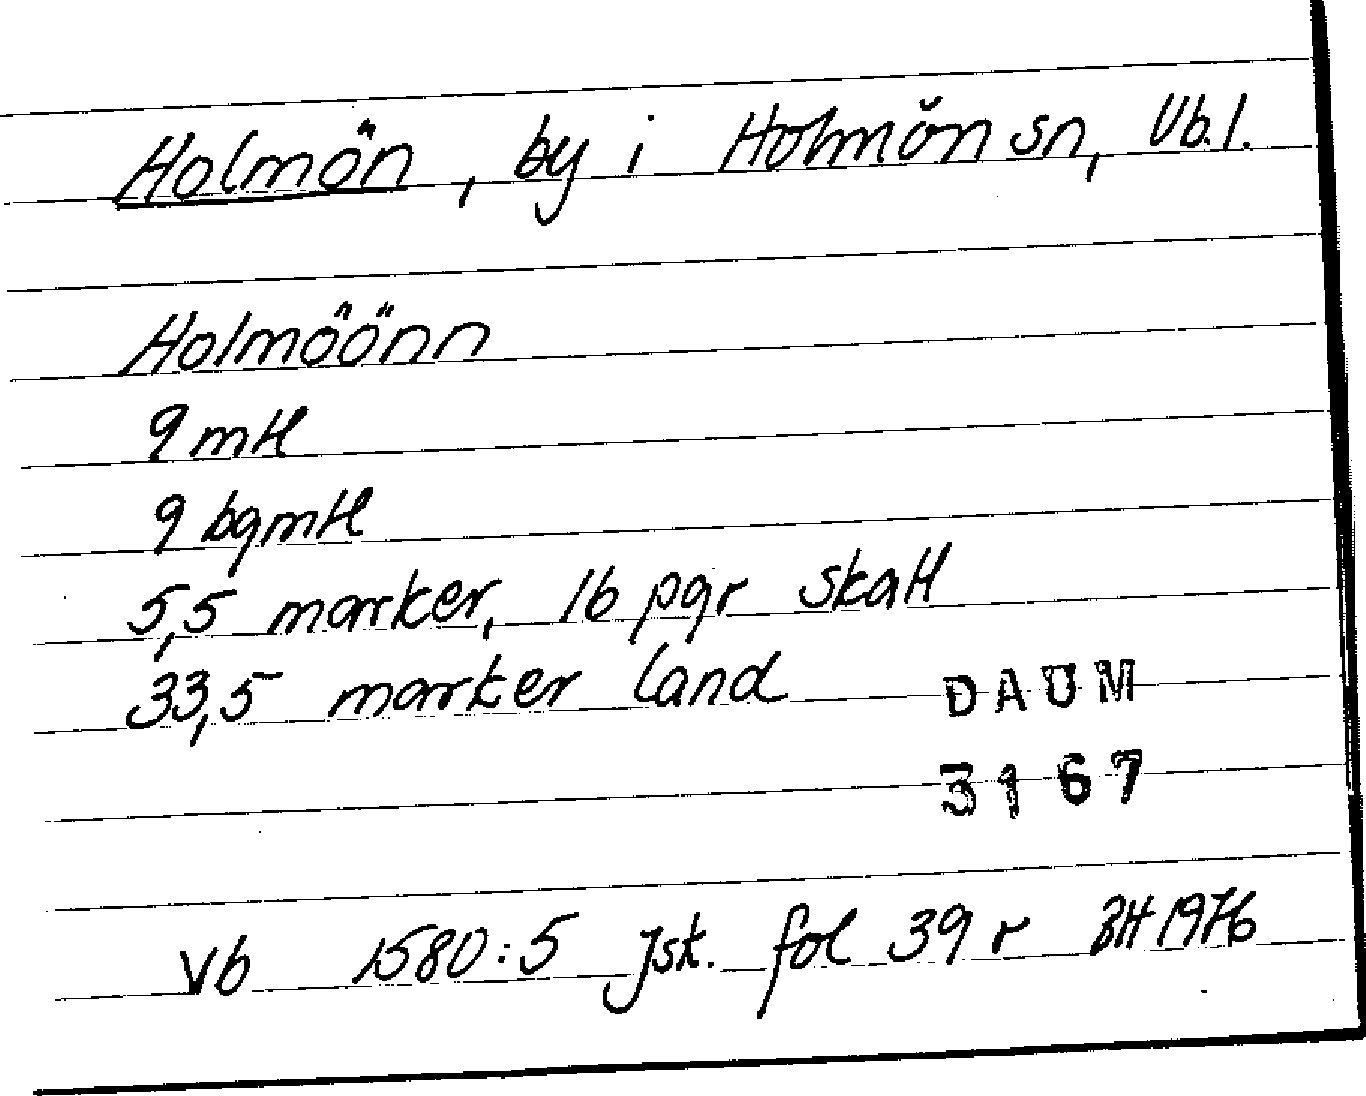 Holmön, by i Holmön sn, Vb.l.
Holmöönn
9 mtl
9 bgmtl
5,5 marker, 16 pgr skatt
33,5 marker land
DAUM
3167
Vb 1580:5 Jsk. fol 39 r BH 1976